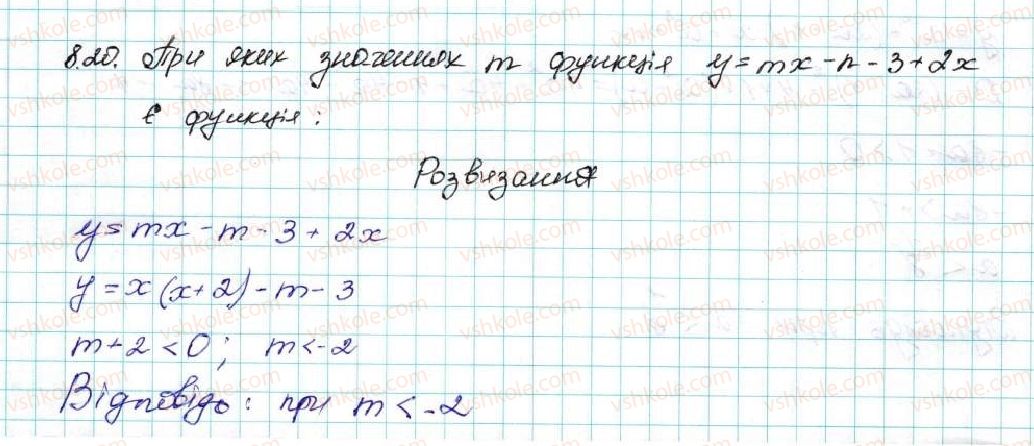 8.20. При яких значеннях m функція y=mx-n-3+2x
є функція:
Розвязання
y=mx-m-3+2x
y=x(x+2)-m-3
m+2<0; m<-2
Відповідь: при m<-2